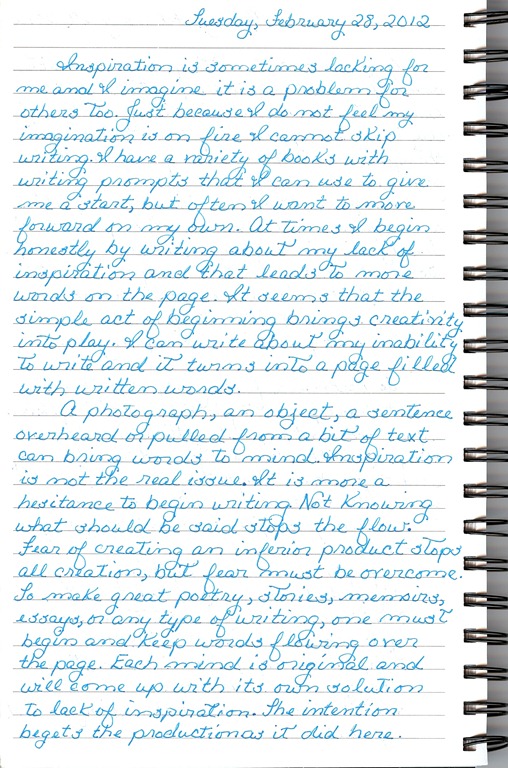 Tuesday, February 28, 2012
Inspiration is sometimes lacking for
me and I imagine it is a problem for
others too. Just because I do not feel my
imagination is on fire I cannot skip
writing. I have a variety of books with
writing prompts that I can use to give
me a start, but often I want to move
forward on my own. At times I begin
honestly by writing about my lack of
inspiration and that leads to more
words on the page. It seems that the
simple act of beginning brings creativity
into play. I can write about my inability
to write and it turns into a page filled
with written words.
A photograph, an object, a sentence
overheard or pulled from a bit of text
can bring words to mind. Inspiration
is not the real issue. It is more a
hesitance to begin writing. Not knowing
what should be said stops the flow.
Fear of creating an inferior product stops
all creation, but fear must be overcome.
To make great poetry, stories, memoirs,
essays, or any type of writing, one must
begin and keep words flowing over
the page. Each mind is original and
will come up with its own solution
to lack of inspiration. The intention
begets the production as it did here.